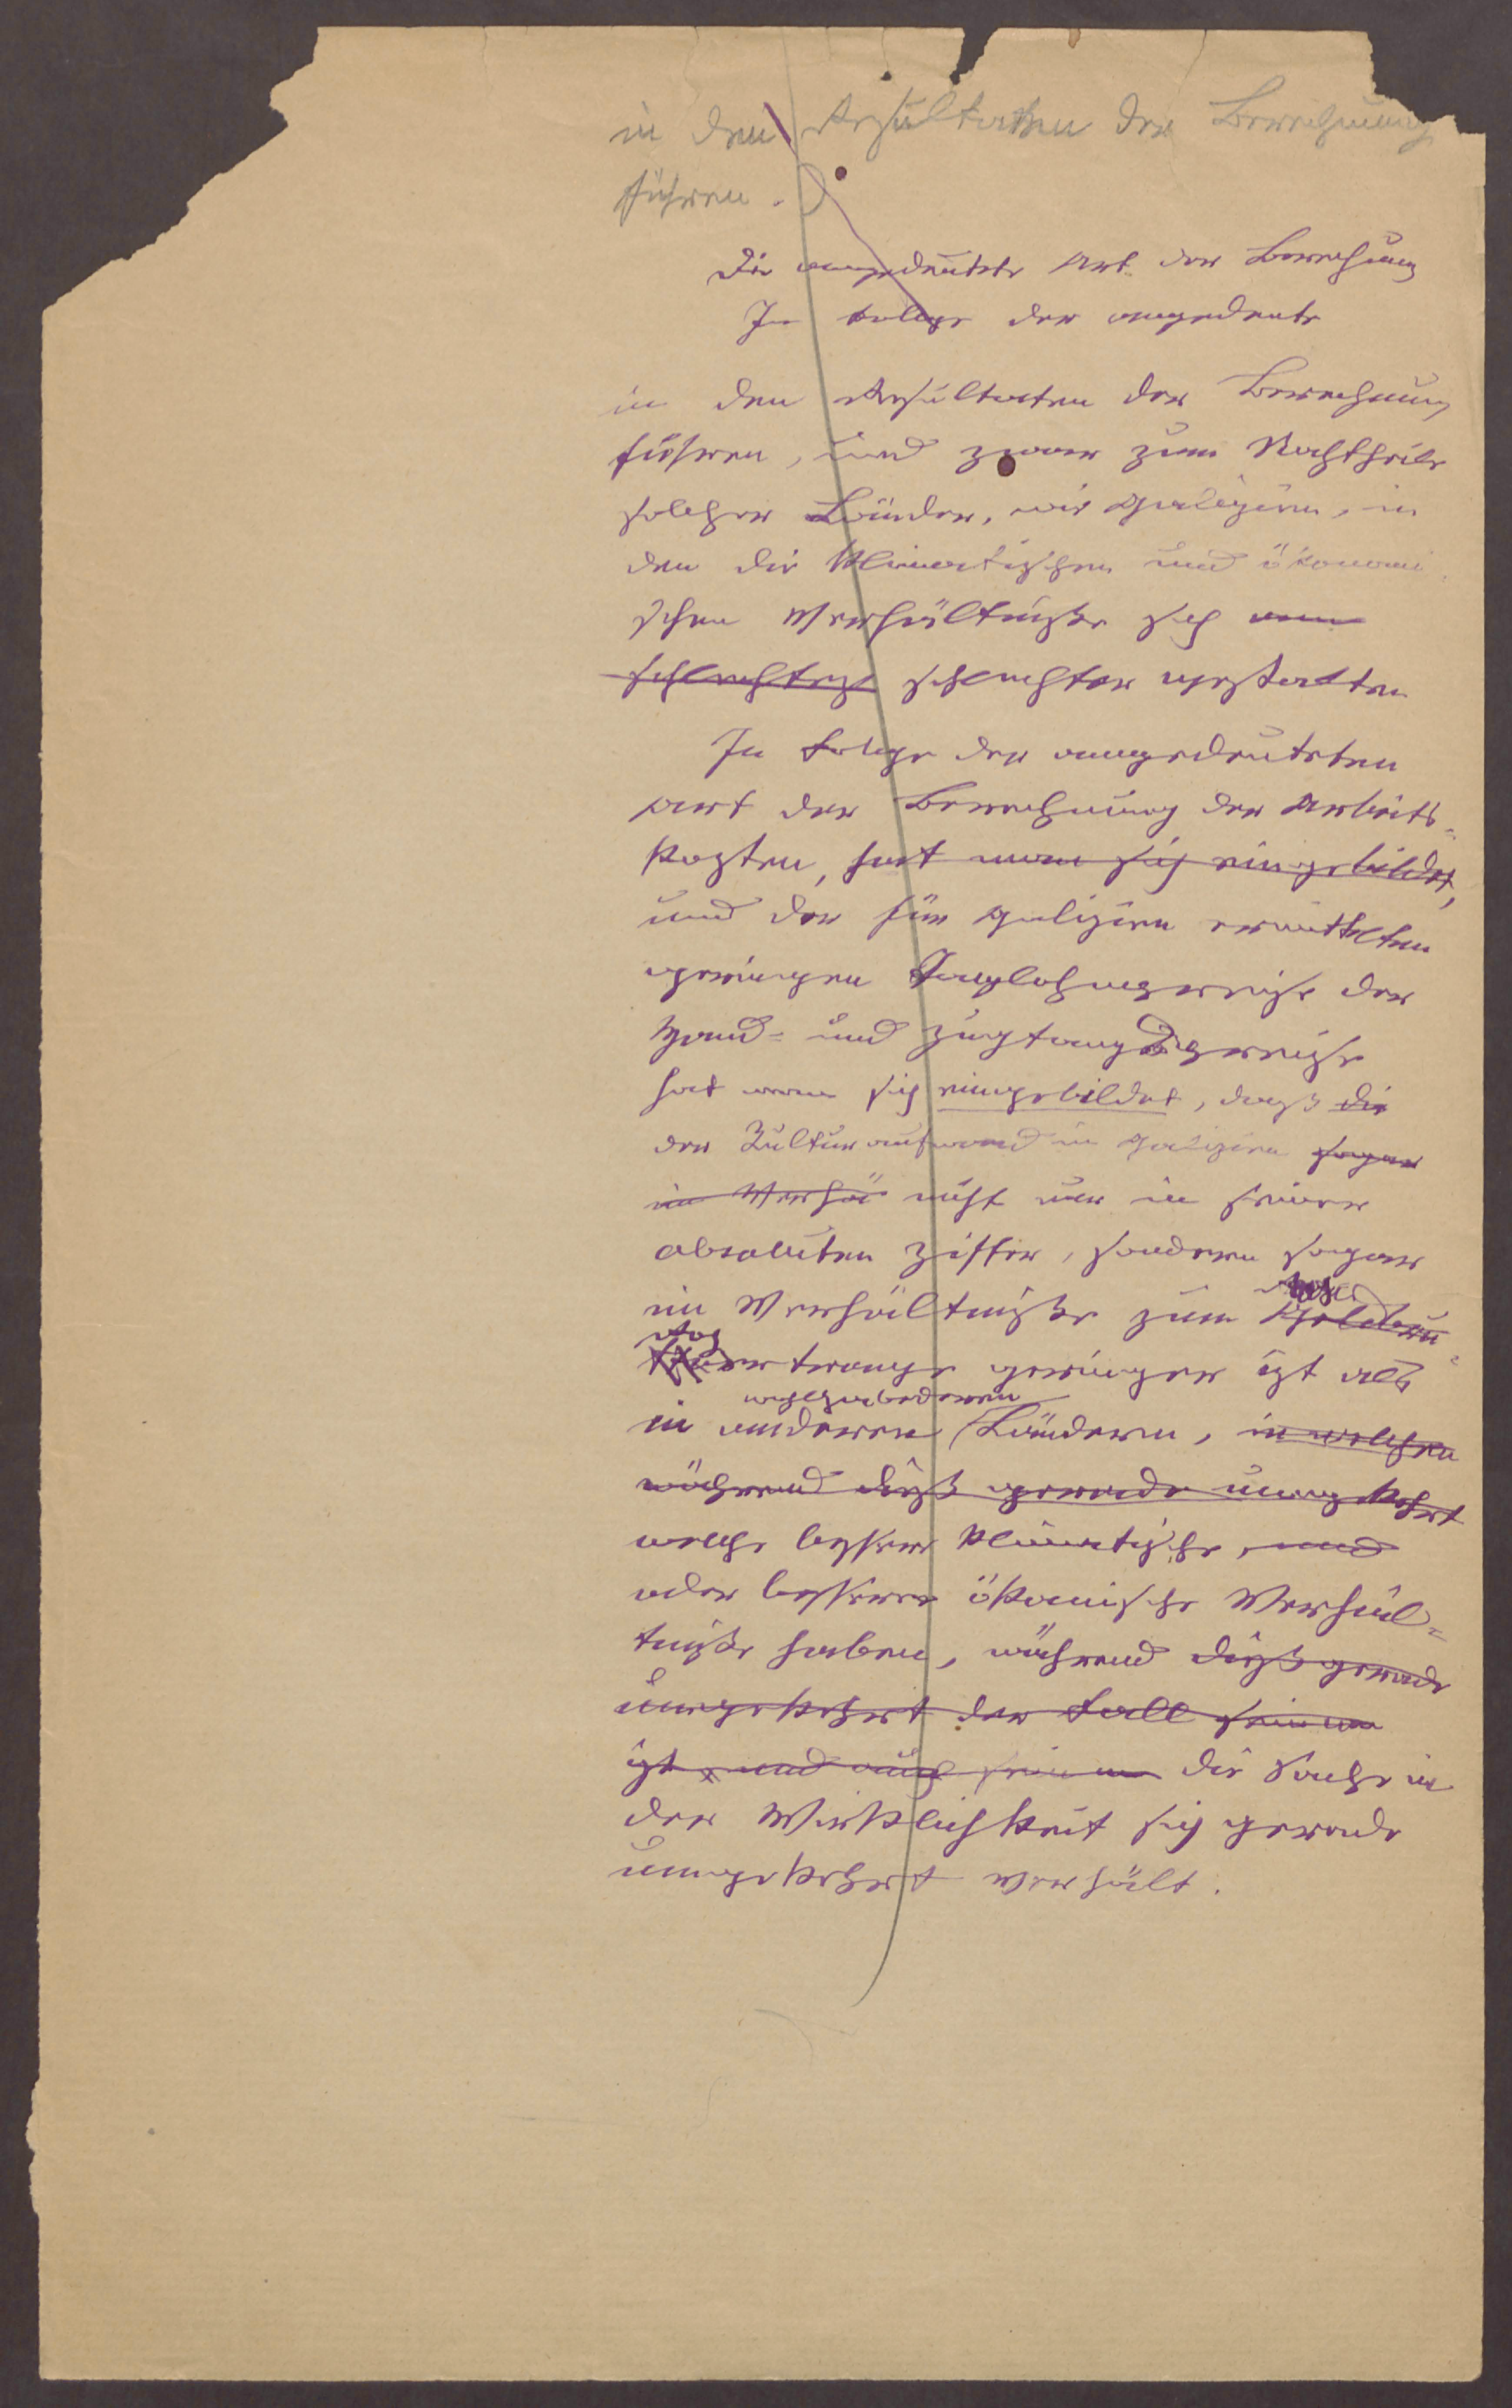 in den Resultaten der Berechnung
führen.
Die angedeutete Art der Berechnung
In Folge der angedeute
in den Resultaten der Berechnung
führen, und zwar zum Nachtheile
solcher Länder, wie Galizien, in
den die klimatischen und ökonomi-
schen Verhältniße sich
schlechter gestalten
In Folge der angedeuteten
Art der Berechnung der Arbeits-
kosten, hat man sich eingebildet,
und der für Galizien ermittelten
geringen Taglohnspreise der
Hand- und Zugtangspreise
hat man sich eingebildet, dass die
der Kulturaufwand in Galizien sogar
im Verhä nicht nur in seiner
absoluten Ziffer, sondern sogar
im Verhältniße zum
ertrage geringer ist als
in anderen Ländern, in welchen
während dieß gerade umgekehrt
welche bessere klimatische, und
oder bessere ökonomische Verhäl-
tniße haben, während dieß gerade
umgekehrt der Fall
ist, und auch die Sache in
der Wirklichkeit sich gerade
umgekehrt verhält.